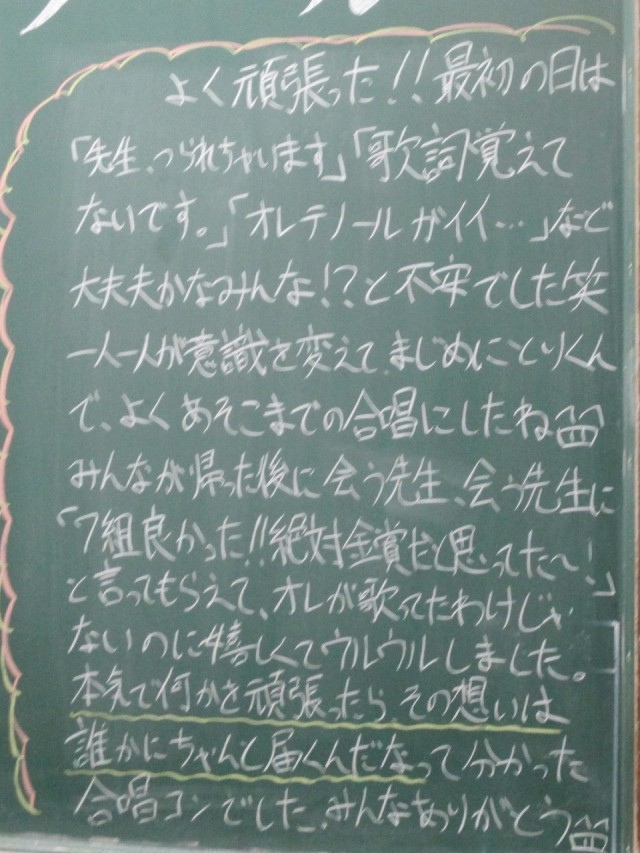 よく頑張った!!最初の日は
「先生、つられちゃいます」「歌詞覚えて
ないです。」「オレテノールがイイ…」などで
大丈夫かなみんな!?と不安でした笑
一人一人が意識を変えて、まじめにとりくん
で、よくあそこまでの合唱にしたね
みんなが帰った後に会う先生、会う先生に
「7組良かった!!絶対金賞だと思ってた〜!」
と言ってもらえて、オレが歌ってたわけじゃ
ないのに嬉しくてウルウルしました。
本気で何かを頑張ったら、その想いは
誰かにちゃんと届くんだなって分かった
合唱コンでした、みんなありがとう